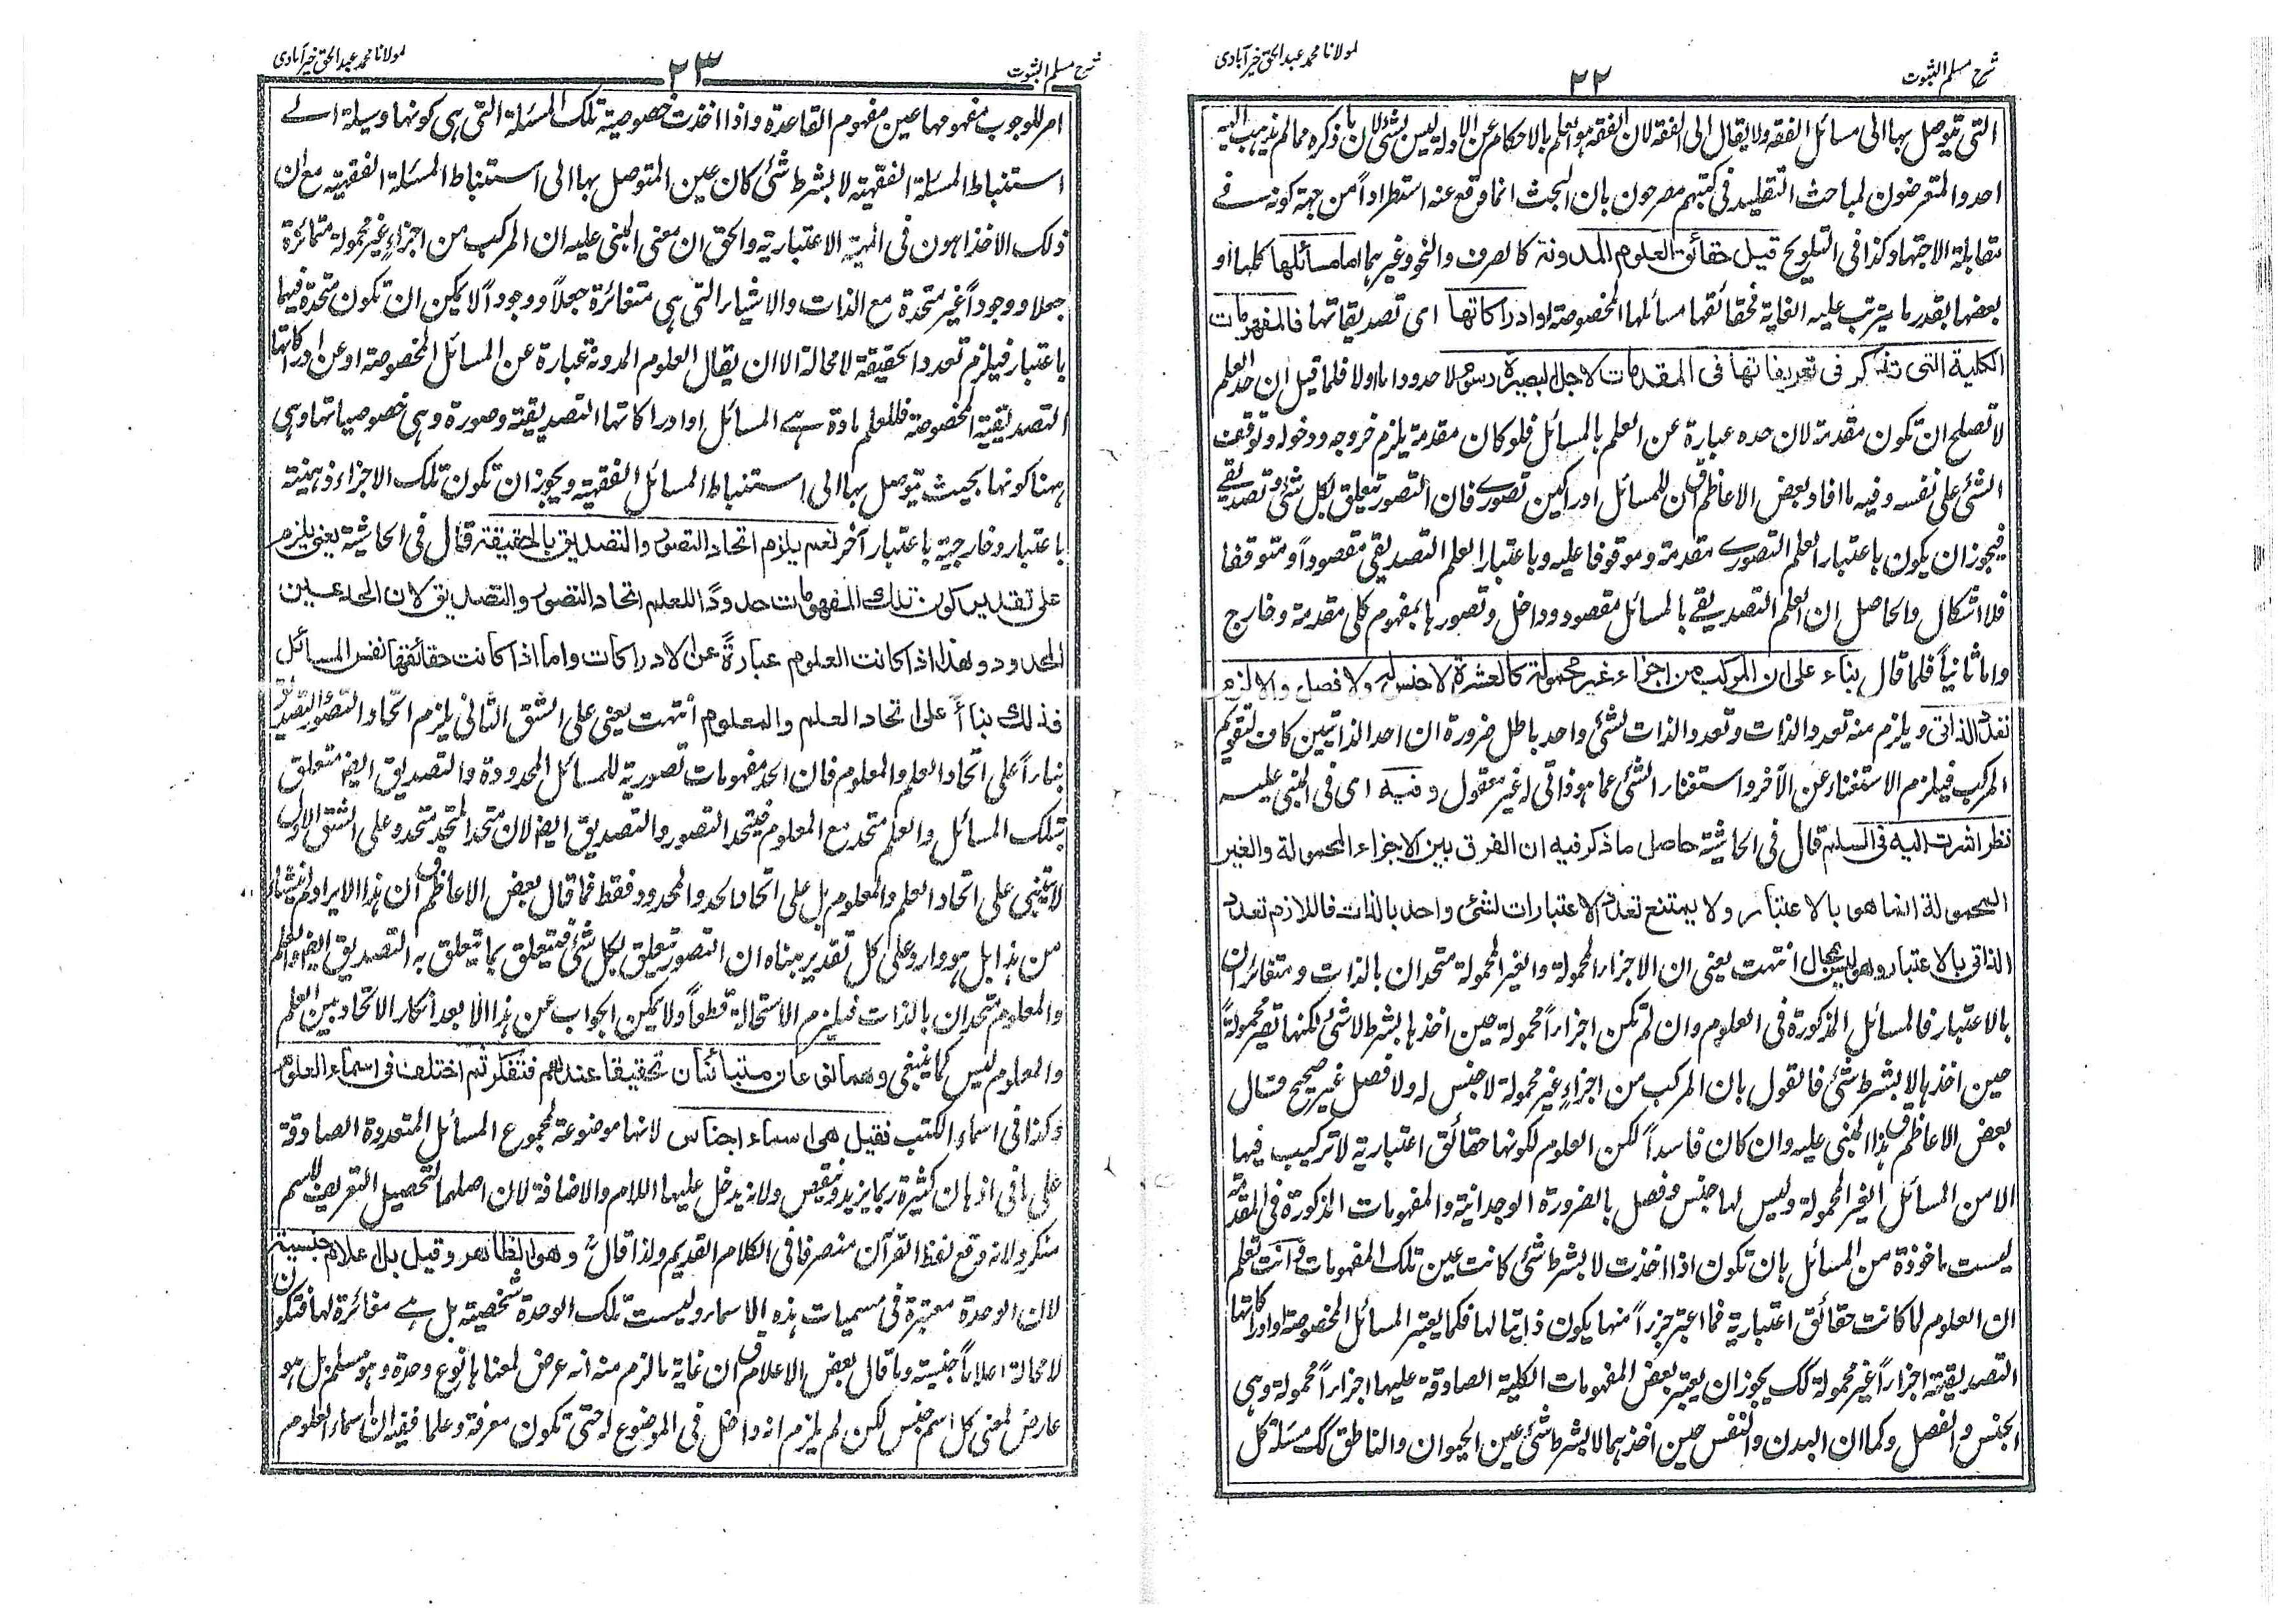 شرح مسلم الثبوت
٢٢
لمولانا محمد عبد الحق خيرآبادى
التى يتوصل بها الى مسائل الفقه ولا يقال الى الفقه لان الفقه هو العلم بالاحكام عن الادلة ليس بشئ لان ما ذكره مما لم يذهب اليه
احد والمتعرضون لمباحث التقليد فى كتبهم مصرحون بان البحث انما وقع عنه استطراداً من جهة كونه فے
مقابلة الاجتهاد كذا فى التلويح قيل حقائق العلوم المدونة كالصرف والنحو وغيرهما اما مسائلها كلها او
بعضها بقدر ما يترتب عليه الغاية فحقائقها مسائلها المخصوصة او ادراكاتها اى تصديقاتها فالمفهومات
الكلية التى تذكر فى تعريفاتها فى المقدمات لاجل البصيرة رسوم لا حدود اما اولا فلما قيل ان حد العلم
لا تصلح ان تكون مقدمة لان حده عبارة عن العلم بالمسائل فلو كان مقدمة يلزم خروجه ودخوله وتوقف
الشئ على نفسه وفيه ما افاد بعض الاعاظمؒ ان للمسائل ادراكين تصورے فان التصور يتعلق بكل شئ وتصديقے
فيجوز ان يكون باعتبار العلم التصورے مقدمة وموقوفا عليه وباعتبار العلم التصديقى مقصوداً ومتوقفا
فلا اشكال والحاصل ان العلم التصديقے بالمسائل مقصود وداخل وتصورها بمفهوم كلى مقدمة وخارج
واما ثانياً فلما قال بناء على ان المركب من اجزاء غير محمولة كالعشرة لا جنس له ولا فصل والا لزم
تعدد الذاتى ويلزم منه تعدد الذات وتعدد الذات لشئ واحد باطل ضرورة ان احد الذاتيين كاف لتقويم
المركب فيلزم الاستغناء عن الآخر واستغناء الشئ عما هو ذاتى له غير معقول وفيه اى فى المبنى عليه
نظر اشرت اليه فى السلم قال فى الحاشية حاصل ما ذكر فيه ان الفرق بين الاجزاء المحمولة والغير
المحمولة انما هو بالاعتبار ولا يمتنع تعدد الاعتبارات لشئ واحد بالذات فاللازم تعدد
الذاتى بالاعتبار وهو ليس بمحال انتهت يعنى ان الاجزاء المحمولة والغير المحمولة متحدان بالذات ومتغائران
بالاعتبار فالمسائل المذكورة فى العلوم وان لم تكن اجزاءً محمولة حين اخذها بشرط لا شئ لكنها تصير محمولةً
حين اخذها لا بشرط شئ فالقول بان المركب من اجزاءٍ غير محمولة لا جنس له ولا فصل غير صحيح وقال
بعض الاعاظمؒ هذا المبنى عليه وان كان فاسداً لكن العلوم لكونها حقائق اعتبارية لا تركيب فيها
الا من المسائل الغير المحمولة وليس لها جنس وفصل بالضرورة الوجدانية والمفهومات المذكورة فى المقدمة
ليست ماخوذة من المسائل بان تكون اذا اخذت لا بشرط شئ كانت عين تلك المفهومات وانت تعلم
ان العلوم لما كانت حقائق اعتبارية فما اعتبر جزءاً منها يكون ذاتيا لها فكما يعتبر المسائل المخصوصة او ادراكاتها
التصديقية اجزاءً غير محمولة كك يجوز ان يعتبر بعض المفهومات الكلية الصادقة عليها اجزاءً محمولة وهى
الجنس والفصل وكما ان البدن والنفس حين اخذهما لا بشرط شئ عين الحيوان والناطق كك مسئلة كل
شرح مسلم الثبوت
٢٣
لمولانا محمد عبد الحق خيرآبادى
امر للوجوب مفهومها عين مفهوم القاعدة واذا اخذت خصوصية تلك المسئلة التى هى كونها وسيلة الے
استنباط المسئلة الفقهية لا بشرط شئ كان عين المتوصل بها الى استنباط المسئلة الفقهية مع ان
ذلك الاخذ اهون فى المهية الاعتبارية والحق ان معنى المبنى عليه ان المركب من اجزاءٍ غير محمولة متمائزة
جعلا ووجوداً غير متحدة مع الذات والاشياء التى هى متغائرة جعلاً ووجوداً لا يمكن ان تكون متحدة فيهما
باعتبار فيلزم تعدد الحقيقة لا محالة الا ان يقال العلوم المدونة عبارة عن المسائل المخصوصة او عن ادراكاتها
التصديقية المخصوصة فللعلم مادة هے المسائل او ادراكاتها التصديقية وصورة وهى خصوصياتها وهى
ههنا كونها بحيث يتوصل بها الى استنباط المسائل الفقهية ويجوز ان تكون تلك الاجزاء ذهنية
باعتبار وخارجية باعتبار آخر نعم يلزم اتحاد التصور والتصديق بالحقيقة قال فى الحاشية يعنى يلزم
على تقدير كون تلك المفهومات حدودًا للعلم اتحاد التصور والتصديق لان الحد عين
المحدود وهذا اذا كانت العلوم عبارةً عن الادراكات واما اذا كانت حقائقها نفس المسائل
فذلك بناءً على اتحاد العلم والمعلوم انتهت يعنى على الشق الثانى يلزم اتحاد التصور والتصديق
بناءاً على اتحاد العلم والمعلوم فان الحد مفهومات تصورية للمسائل المحدودة والتصديق ايضا متعلق
بتلك المسائل والعلم متحد مع المعلوم فيتحد التصور والتصديق ايضا لان متحد المتحد متحد وعلى الشق الاول
لا يبتنى على اتحاد العلم والمعلوم بل على اتحاد الحد والمحدود فقط فما قال بعض الاعاظمؒ ان هذا الايراد لم ينشاء
من هذا بل هو وارد على كل تقدير مبناه ان التصور يتعلق بكل شئ فيتعلق بما يتعلق به التصديق ايضا والعلم
والمعلوم متحدان بالذات فيلزم الاستحالة قطعاً ولا يمكن الجواب عن هذا الا بعد انكار الاتحاد بين العلم
والمعلوم ليس كما ينبغى وهما نوعان متبائنان تحقيقا عندهم فتفكر ثم اختلف فى اسماء العلوم
وكذا فى اسماء الكتب فقيل هى اسماء اجناس لانها موضوعة لمجموع المسائل المتعددة الصادقة
على ما فى اذهان كثيرة ربما يزيد وينقص ولانه يدخل عليها اللام والاضافة لان اصلهما لتحصيل التعريف للاسم
منكر ولانه وقع لفظ القرآن منصرفا فى الكلام القديم ولذا قالؒ وهو الظاهر وقيل بل اعلام جنسية
لان الوحدة معتبرة فى مسميات هذه الاسماء وليست تلك الوحدة شخصية بل هے مغائرة لها فتكون
لا محالة اعلاماً جنسية وما قال بعض الاعلامؒ ان غاية ما لزم منه انه عرض لمعناها نوع وحدة وهو مسلم بل هو
عارض لمعنى كل اسم جنس لكن لم يلزم انه داخل فى الموضوع له حتى تكون معرفة وعلما ففيه ان اسماء العلوم